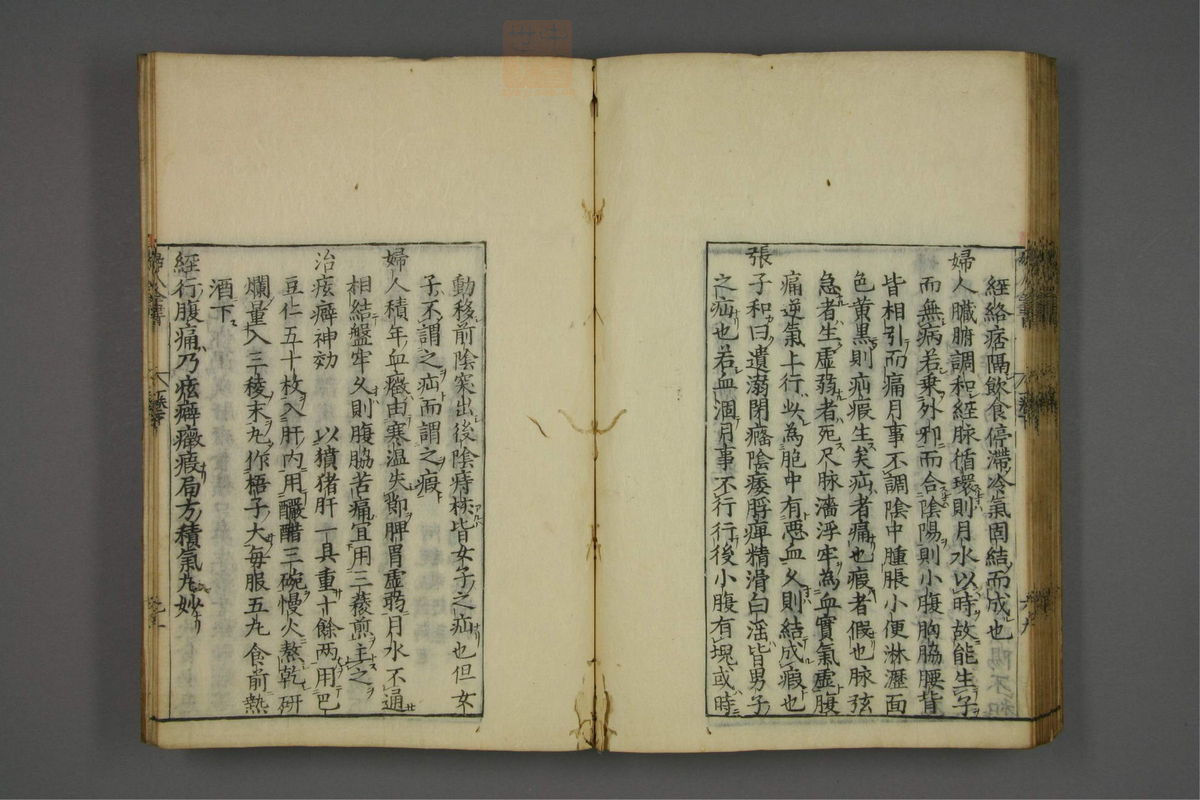 經絡痞隔飲食停滯冷氣固結而成也
婦人臟腑調和經脉循環則月水以時故能生子
而無病若乗外邪而合陰陽則小腹胸脇腰背
皆相引而痛月事不調陰中腫脹小便淋瀝面
色黄黒則疝瘕生矣疝者痛也瘕者假也脉弦
急者生虚弱者死尺脉濇浮牢為血實氣虚腹
痛逆氣上行此為胞中有悪血久則結成瘕也
張子和曰遺溺閉癃陰痿脬痺精滑白淫皆男子
之疝也若血涸月事不行行後小腹有塊或時
動移前陰突出後陰痔核皆女子之疝也但女
子不謂之疝而謂之瘕
婦人積年血癥由寒温失節脾胃虚弱月水不通
相結盤牢久則腹脇苦痛宜用三稜煎主之
治痃癖神効 以獖猪肝一具重十餘两用巴
豆仁五十枚入肝内用釅醋三碗慢火熬乾研
爛量入三稜末丸作梧子大毎服五丸食前熱
酒下
經行腹痛乃痃癖癥瘕局方積氣丸妙